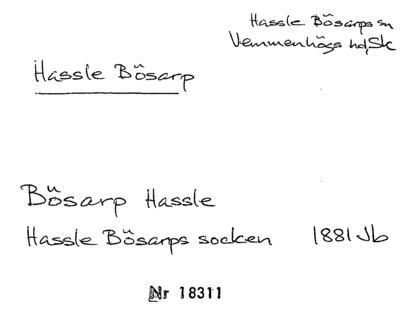 Hassle Bösarps sn
Vemmenhögs hd, Sk
Hassle Bösarp
Bösarp Hassle
Hassle Bösarps socken 1881 Jb
Nr 18311